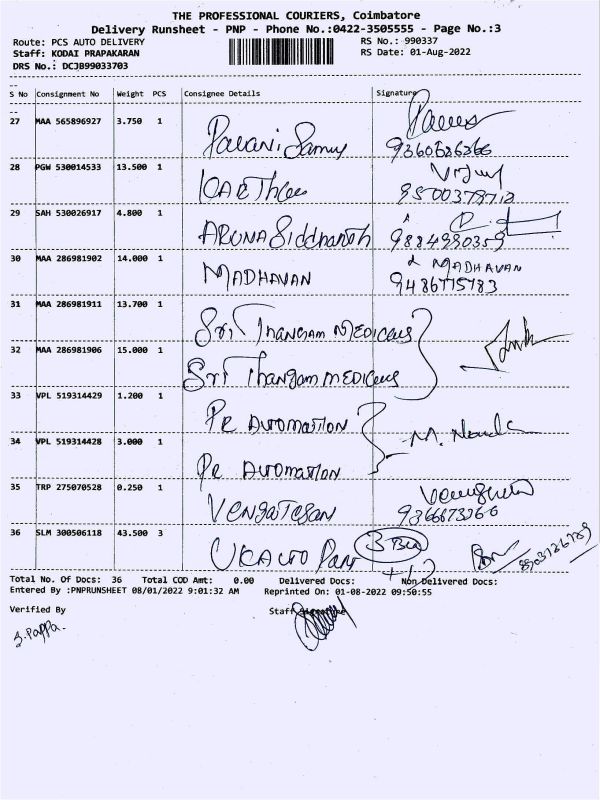 THE PROFESSIONAL COURIERS, Coimbatore
Delivery Runsheet - PNP - Phone No.:0422-3505555 - Page No.:3
Route: PCS AUTO DELIVERY
RS No.: 990337
Staff: KODAI PRAPAKARAN
RS Date: 01-Aug-2022
DRS No.: DCJB99033703
S No Consignment No Weight PCS Consignee Details Signature
27 MAA 565896927 3.750 1 Palani Samy
28 PGW 530014533 13.500 1
29 SAH 530026917 4.800 1 ARUNA Siddharth 9884980359
30 MAA 286981902 14.000 1 MADHAVAN MADHAVAN
9486775783
31 MAA 286981911 13.700 1 Sri Thangam MEDICALS
32 MAA 286981906 15.000 1 Sri Thangam MEDICALS
33 VPL 519314429 1.200 1 PR AUTOMATION
34 VPL 519314428 3.000 1 PR AUTOMATION
35 TRP 275070528 0.250 1 VENGATESAN
36 SLM 300506118 43.500 3 3 Box
Total No. Of Docs: 36 Total COD Amt: 0.00 Delivered Docs: Non Delivered Docs:
Entered By :PNPRUNSHEET 08/01/2022 9:01:32 AM Reprinted On: 01-08-2022 09:50:55
Verified By Staff Signature
S. Pappa.